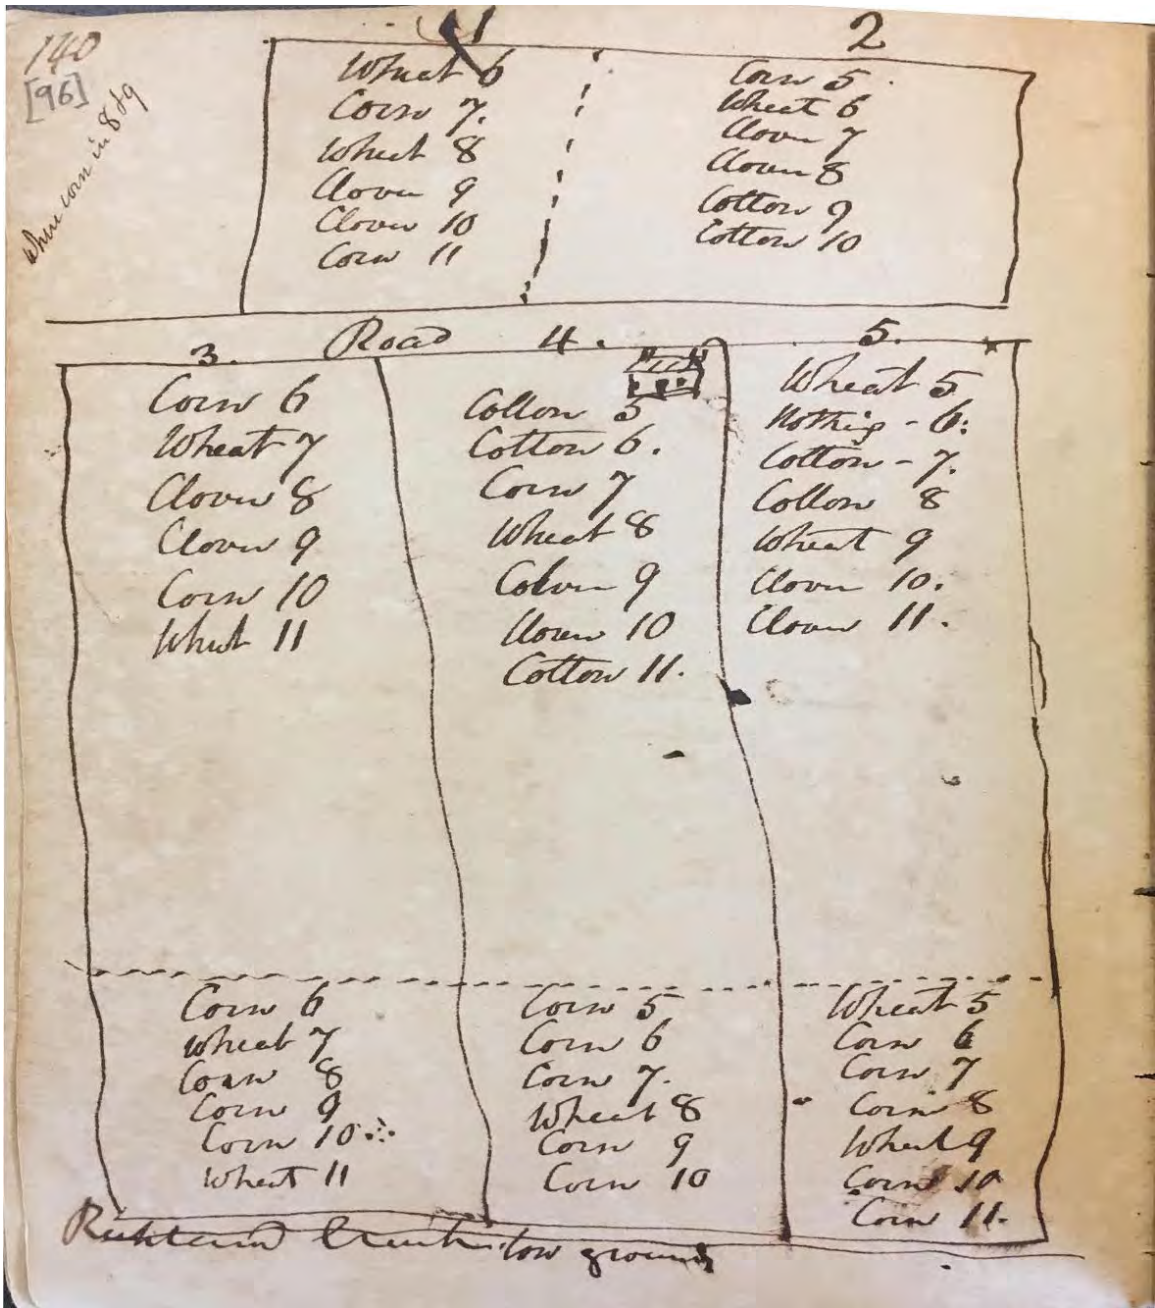 140
[96]
where corn in 8 & 9
1
2
Wheat 6
Corn 7.
Wheat 8
Clover 9
Clover 10
Corn 11
Corn 5.
Wheat 6
Clover 7
Clover 8
Cotton 9
Cotton 10
Road
3.
4.
5.
Corn 6
Wheat 7
Clover 8
Clover 9
Corn 10
Wheat 11
Cotton 5
Cotton 6.
Corn 7
Wheat 8
9
Clover 10
Cotton 11.
Wheat 5
Nothing - 6.
Cotton - 7.
Cotton 8
Wheat 9
Clover 10.
Clover 11.
Corn 6
Wheat 7
Corn 8
Corn 9
Corn 10
Wheat 11
Corn 5
Corn 6
Corn 7.
Wheat 8
Corn 9
Corn 10
Wheat 5
Corn 6
Corn 7
Corn 8
Wheat 9
Corn 10
Corn 11.
Richland Creek low grounds